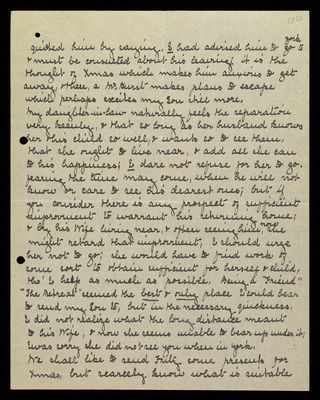 York
guided him by saying, I had advised him to go to
& must be consulted about his leaving; it is the
thought of Xmas which makes him anxious to get
away, & then, a Mr. Hurst makes plans to escape
which perhaps excites my Son still more.
My daughter-in-law naturally feels the separation
very keenly, & that so long as her husband knows
her & his child so well, & wants to see them,
that she ought to live near, & add all she can
to his happiness; I dare not refuse for her to go,
fearing the time may come, when he will not
know or care to see his dearest ones; but if
you consider there is any prospect of sufficient
improvement to warrant his returning home;
& by his Wife living near, & often seeing him, she
might retard that improvement, I should urge
her not to go; she would have to find work of
some sort to obtain sufficient for herself & child,
tho' I help as much as possible. Being a "Friend"
"The Retreat" seemed the best & only place I could bear
to send my Son to, but in the necessary quickness,
I did not realize what the long distance meant
to his Wife, & now she seems unable to bear up under it;
I was sorry she did not see you when in York.
We shall like to send Fritz some presents for
Xmas, but scarcely know what is suitable